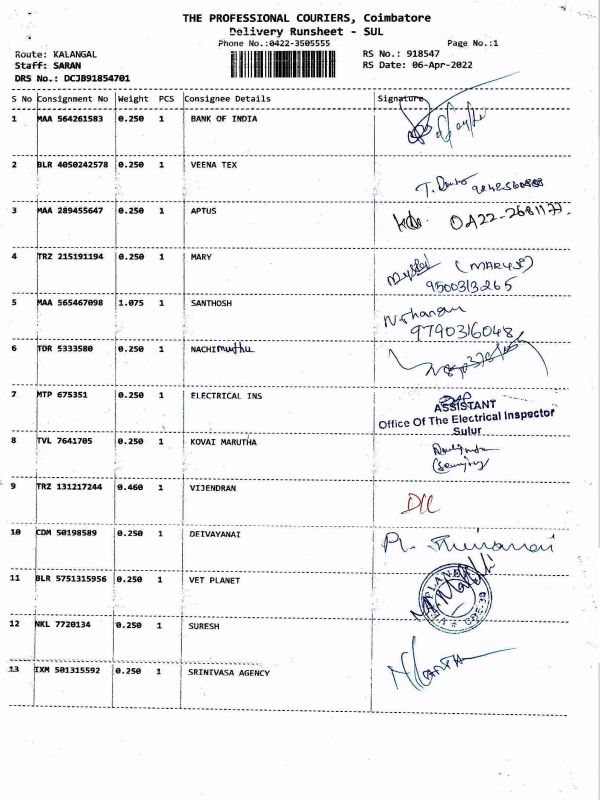 THE PROFESSIONAL COURIERS, Coimbatore
Delivery Runsheet - SUL
Phone No.:0422-3505555 Page No.:1
Route: KALANGAL RS No.: 918547
Staff: SARAN RS Date: 06-Apr-2022
DRS No.: DCJB91854701
S No Consignment No Weight PCS Consignee Details Signature
1 MAA 564261583 0.250 1 BANK OF INDIA
2 BLR 4050242578 0.250 1 VEENA TEX
3 MAA 289455647 0.250 1 APTUS 0422-2681177.
4 TRZ 215191194 0.250 1 MARY
9500313265
5 MAA 565467098 1.075 1 SANTHOSH
9790316048
6 TDR 5333580 0.250 1 NACHImuthu
7 MTP 675351 0.250 1 ELECTRICAL INS
ASSISTANT
Office Of The Electrical Inspector
Sulur
8 TVL 7641705 0.250 1 KOVAI MARUTHA
9 TRZ 131217244 0.460 1 VIJENDRAN
10 CDM 50198589 0.250 1 DEIVAYANAI
11 BLR 5751315956 0.250 1 VET PLANET
12 NKL 7720134 0.250 1 SURESH
13 IXM 501315592 0.250 1 SRINIVASA AGENCY